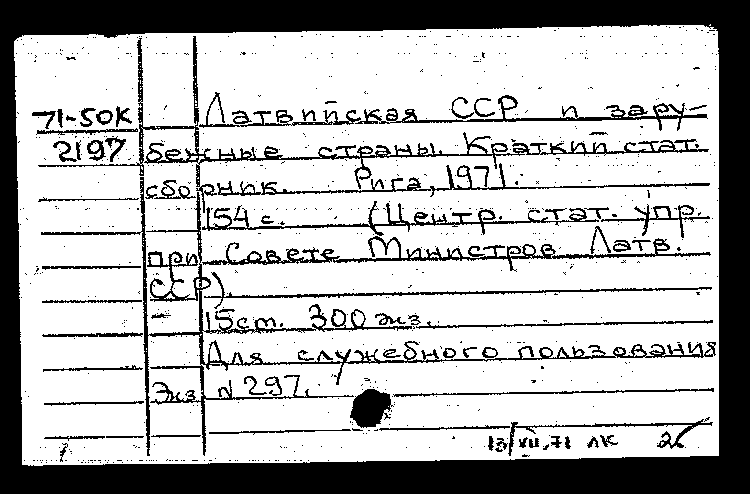 71-50К Латвийская ССР и зару-
2197 бежные страны. Краткий стат.
сборник. Рига, 1971.
154 с. (Центр. стат. упр.
при Совете Министров Латв.
ССР).
15ст. 300 экз.
Для служебного пользования
Экз N 297.
13/XII.71 ЛК